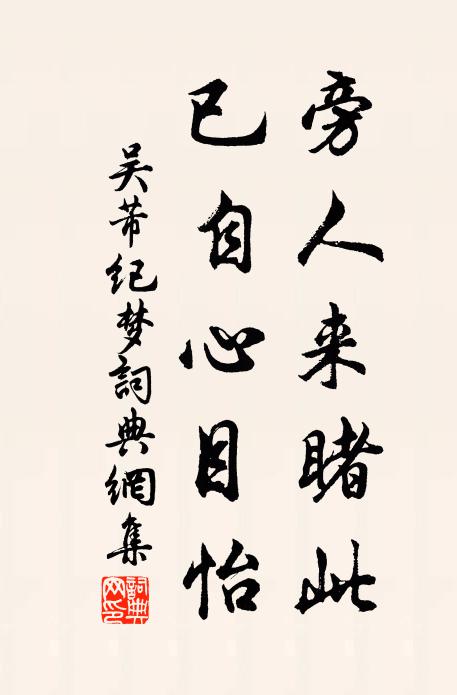 旁人来睹此
已自心目怡
吴芾纪梦詞典網集
詞典网印